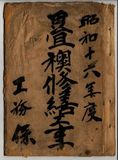 昭和十六年度
畳襖修繕工事
工務係